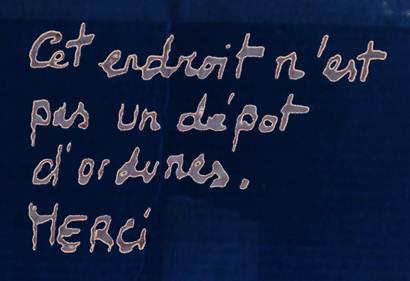 Cet endroit n'est
pas un dépot
d'ordures.
MERCi